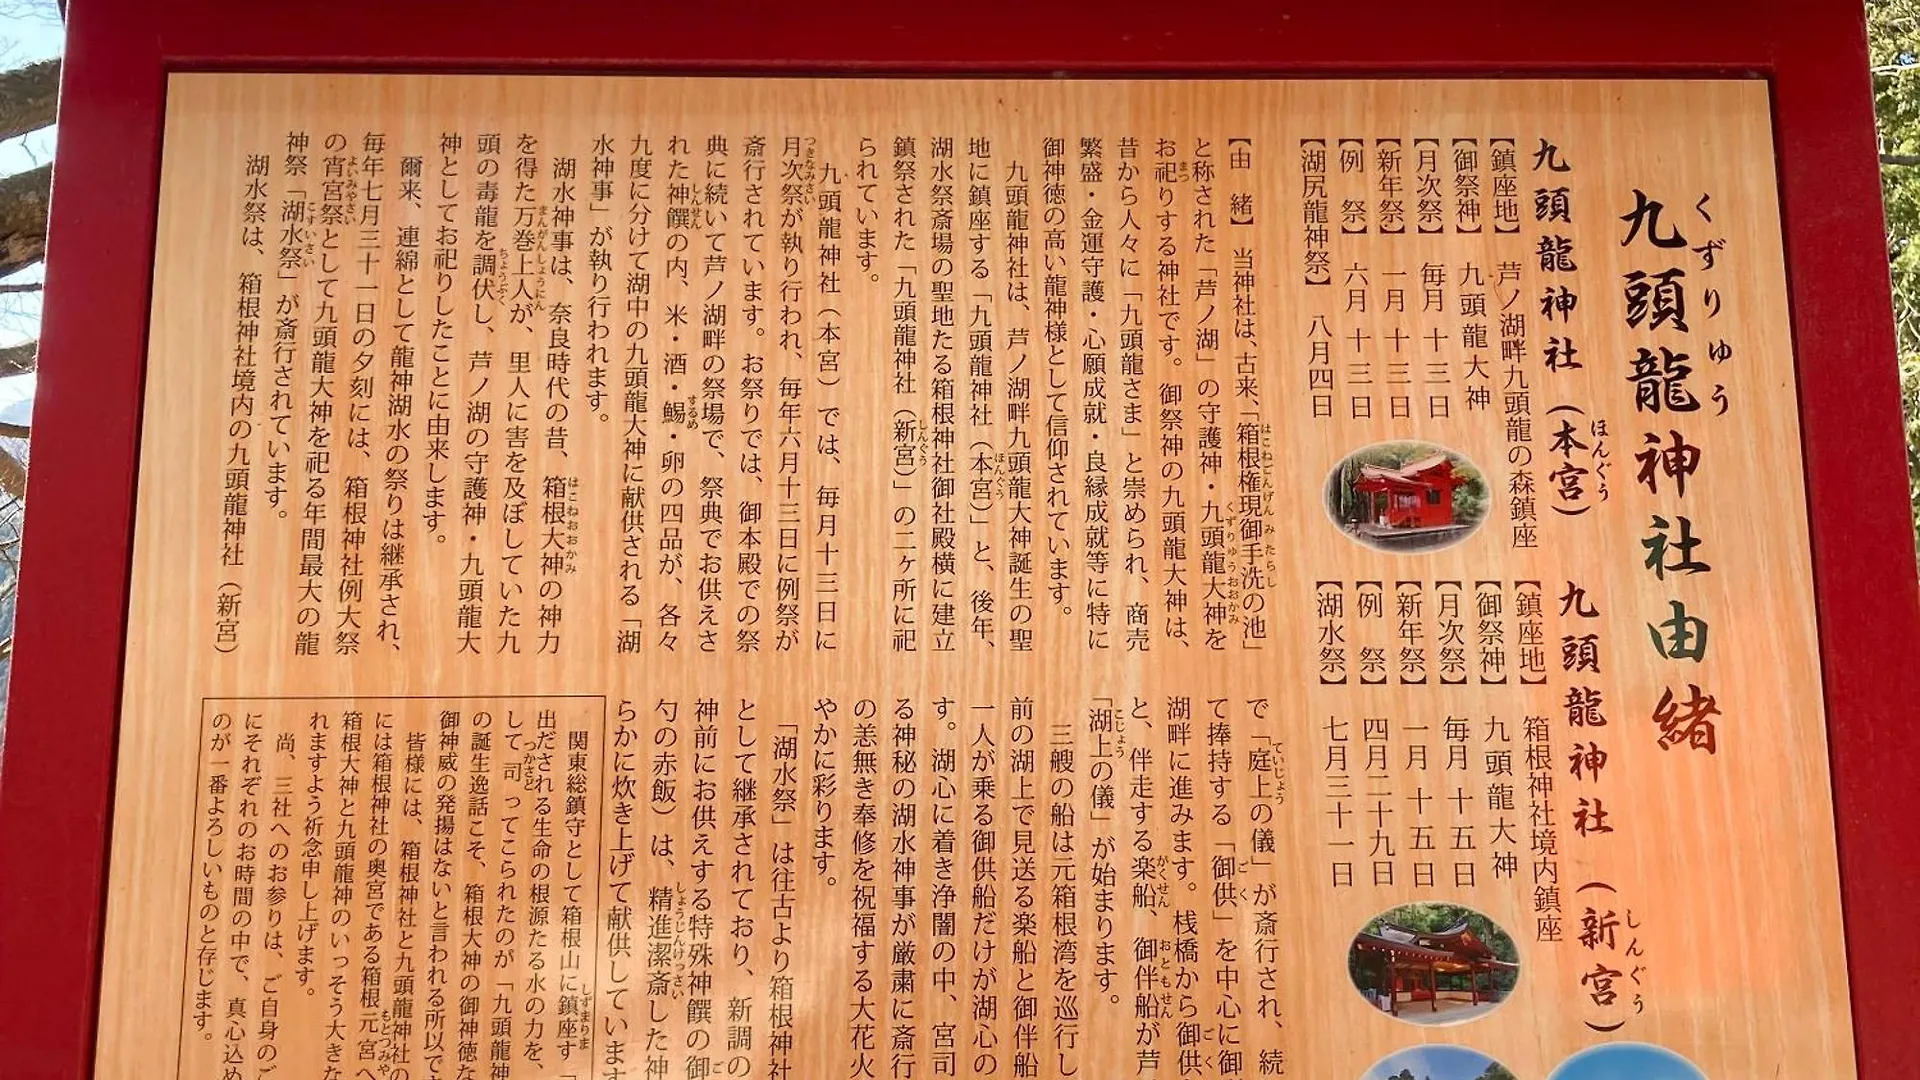 九頭龍神社由緒
くずりゅう
九頭龍神社（本宮）
ほんぐう
【鎮座地】 芦ノ湖畔九頭龍の森鎮座
【御祭神】 九頭龍大神
【月次祭】 毎月 十三日
【新年祭】 一月 十三日
【例 祭】 六月 十三日
【湖尻龍神祭】 八月四日
九頭龍神社（新宮）
しんぐう
【鎮座地】 箱根神社境内鎮座
【御祭神】 九頭龍大神
【月次祭】 毎月 十五日
【新年祭】 一月 十五日
【例 祭】 四月二十九日
【湖水祭】 七月三十一日
【由 緒】 当神社は、古来、「箱根権現御手洗の池」
はこねごんげんみたらし
と称された「芦ノ湖」の守護神・九頭龍大神を
くずりゅうおおかみ
お祀りする神社です。御祭神の九頭龍大神は、
まつ
昔から人々に「九頭龍さま」と崇められ、商売
繁盛・金運守護・心願成就・良縁成就等に特に
御神徳の高い龍神様として信仰されています。
九頭龍神社は、芦ノ湖畔九頭龍大神誕生の聖
地に鎮座する「九頭龍神社（本宮）」と、後年、
ほんぐう
湖水祭斎場の聖地たる箱根神社御社殿横に建立
鎮祭された「九頭龍神社（新宮）」の二ヶ所に祀
しんぐう
られています。
九頭龍神社（本宮）では、毎月十三日に
月次祭が執り行われ、毎年六月十三日に例祭が
つきなみさい
斎行されています。お祭りでは、御本殿での祭
典に続いて芦ノ湖畔の祭場で、祭典でお供えさ
れた神饌の内、米・酒・鯣・卵の四品が、各々
しんせん
するめ
九度に分けて湖中の九頭龍大神に献供される「湖
水神事」が執り行われます。
湖水神事は、奈良時代の昔、箱根大神の神力
はこねおおかみ
を得た万巻上人が、里人に害を及ぼしていた九
まんがんしょうにん
頭の毒龍を調伏し、芦ノ湖の守護神・九頭龍大
ちょうぶく
神としてお祀りしたことに由来します。
爾来、連綿として龍神湖水の祭りは継承され、
毎年七月三十一日の夕刻には、箱根神社例大祭
の宵宮祭として九頭龍大神を祀る年間最大の龍
よいみやさい
神祭「湖水祭」が斎行されています。
こすいさい
湖水祭は、箱根神社境内の九頭龍神社（新宮）
で「庭上の儀」が斎行され、続
ていじょう
て捧持する「御供」を中心に御
ごく
湖畔に進みます。桟橋から御供
ごく
と、伴走する楽船、御伴船が芦
がくせん
おともせん
「湖上の儀」が始まります。
こじょう
三艘の船は元箱根湾を巡行し
前の湖上で見送る楽船と御伴船
一人が乗る御供船だけが湖心の
す。湖心に着き浄闇の中、宮司
る神秘の湖水神事が厳粛に斎行
の恙無き奉修を祝福する大花火
やかに彩ります。
「湖水祭」は往古より箱根神社
として継承されており、新調の
神前にお供えする特殊神饌の御
ご
勺の赤飯）は、精進潔斎した神
しょうじんけっさい
らかに炊き上げて献供しています
関東総鎮守として箱根山に鎮座す
しずまりま
出だされる生命の根源たる水の力を、
して司ってこられたのが「九頭龍神
つかさど
の誕生逸話こそ、箱根大神の御神徳な
御神威の発揚はないと言われる所以でも
皆様には、箱根神社と九頭龍神社の
には箱根神社の奥宮である箱根元宮へ
もとつみや
箱根大神と九頭龍神のいっそう大きな
れますよう祈念申し上げます。
尚、三社へのお参りは、ご自身のご
にそれぞれのお時間の中で、真心込め
のが一番よろしいものと存じます。